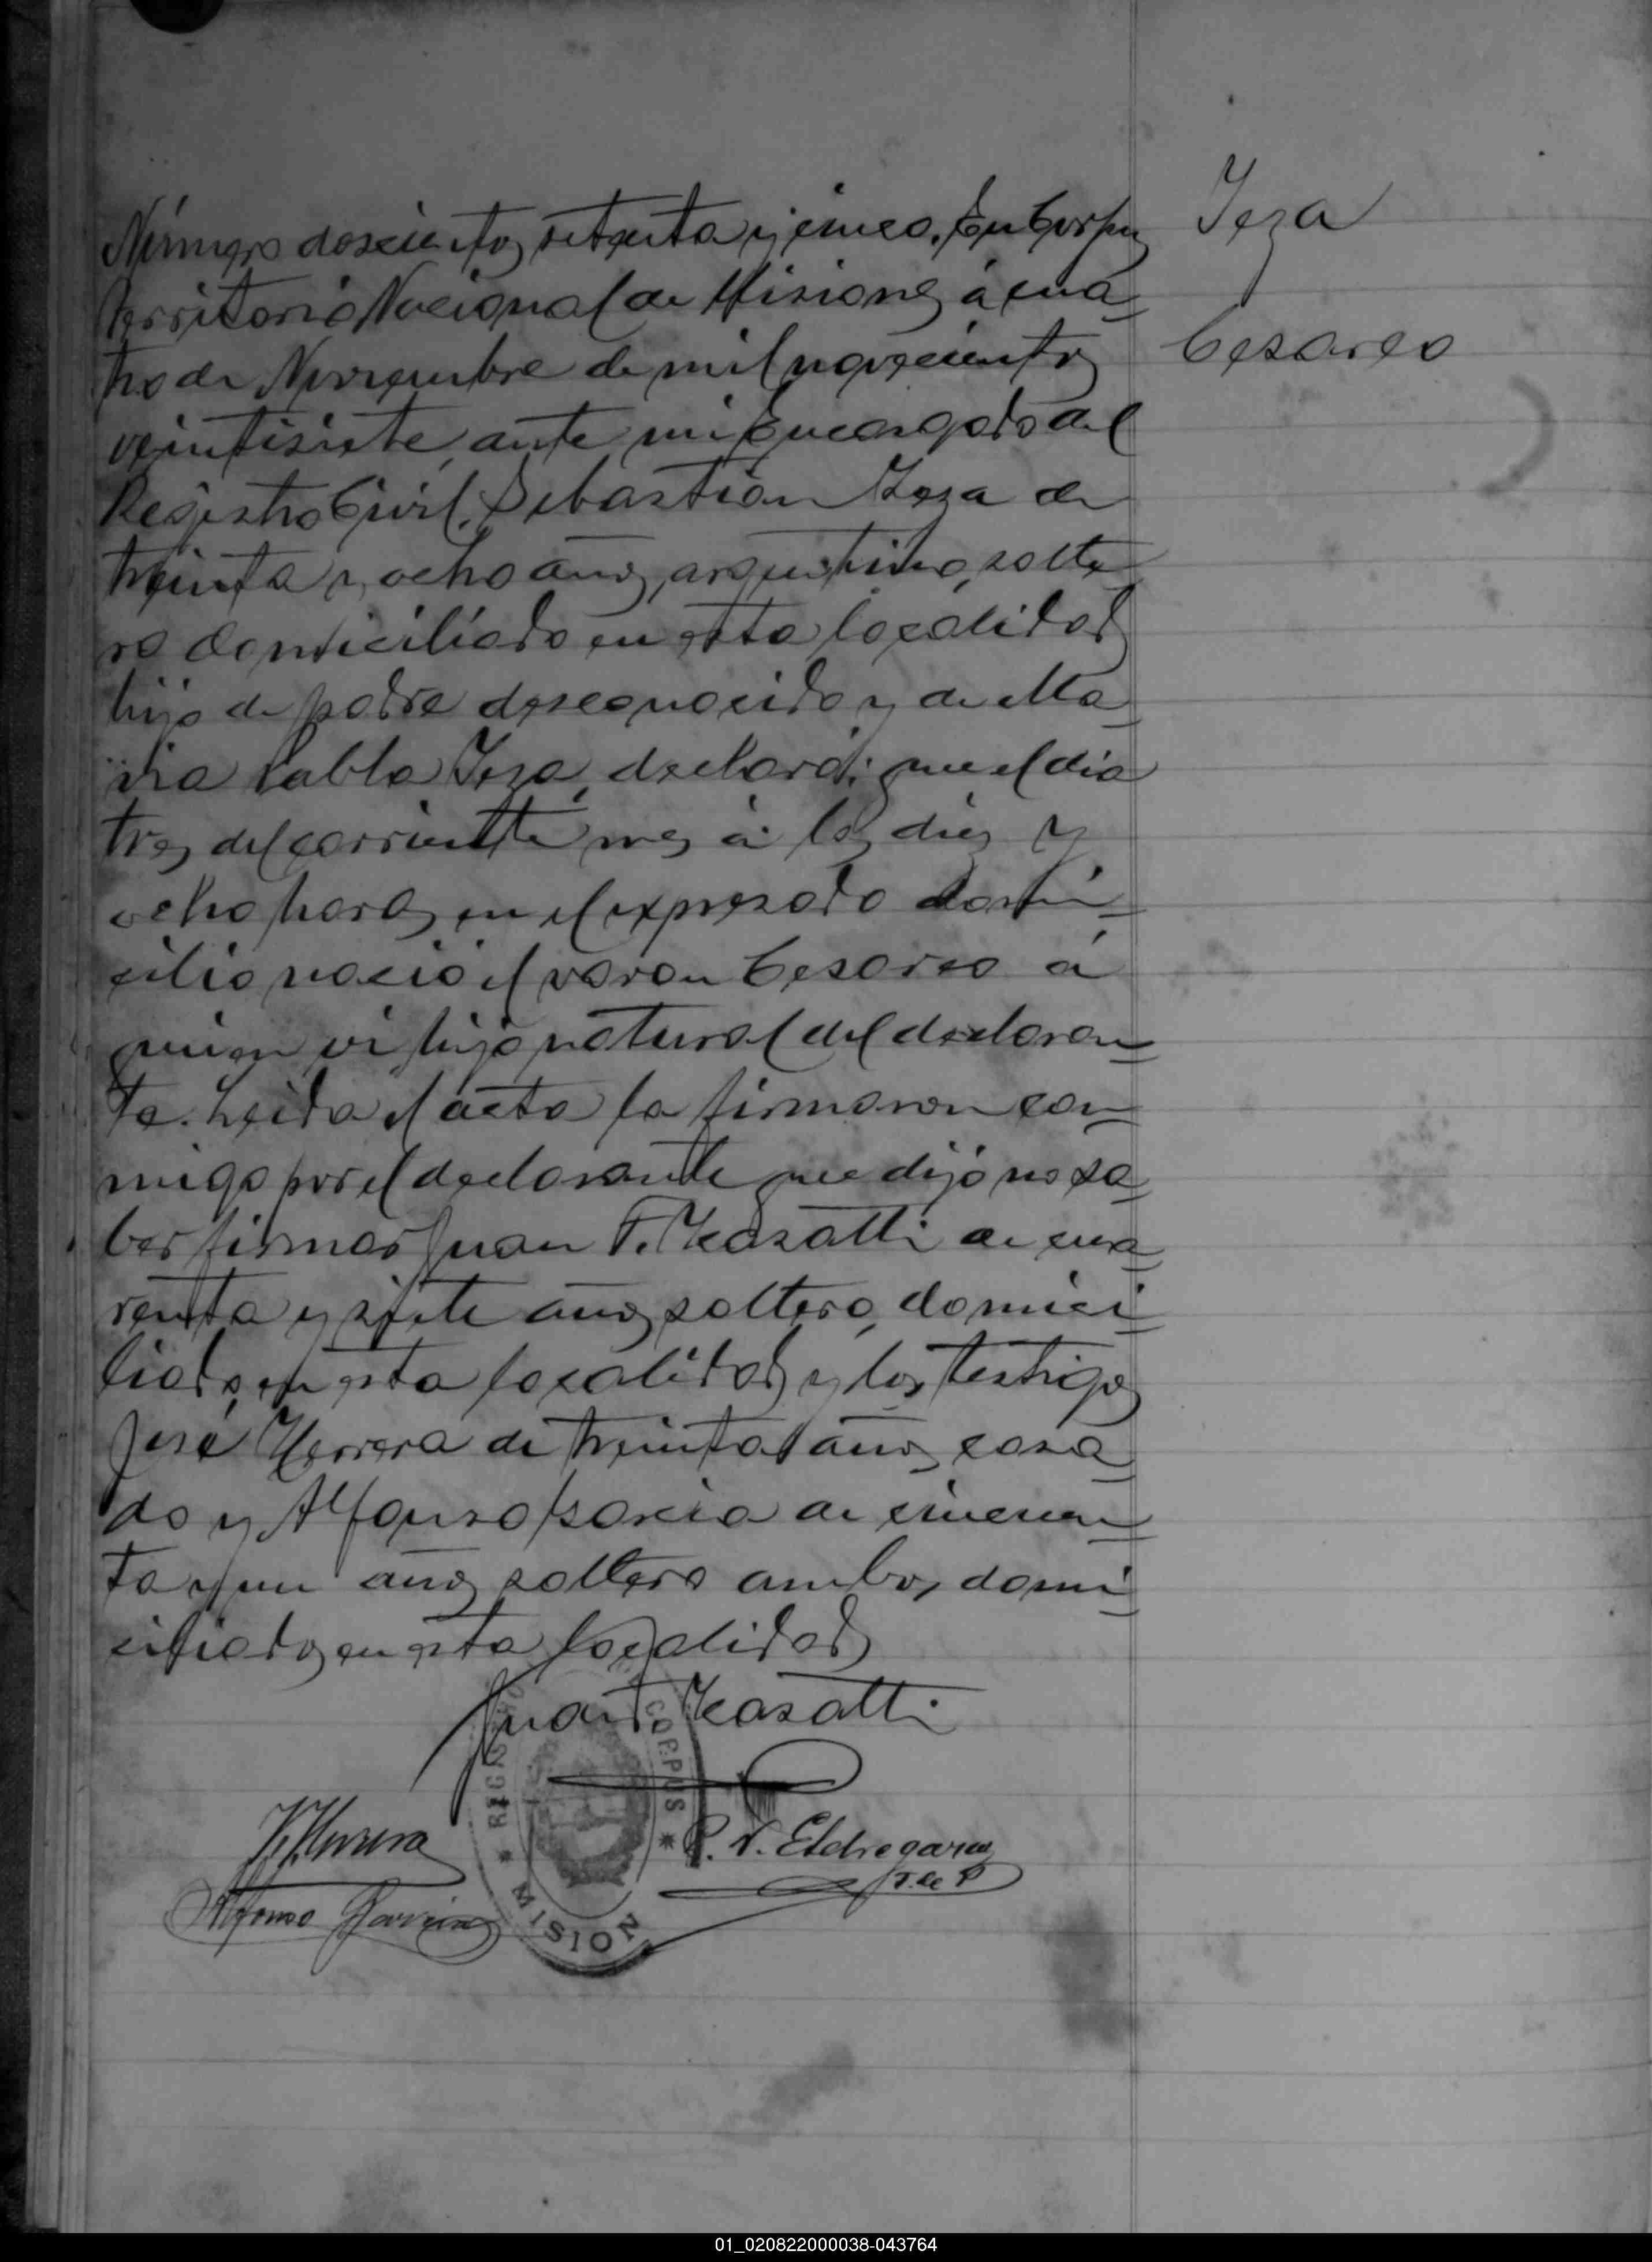 Número doscientos setenta y cinco. En Corpus
Territorio Nacional de Misiones á cua=
tro de Noviembre de mil novecientos
veintisiete, ante mi Encargado del
Registro Civil, Sebastián Yeza de
treinta y ocho años, argentino, solte
ro domiciliado en esta localidad
hijo de padre desconocido y de Ma=
ria Pabla Yeza, declaró: que el dia
tres del corriente mes á las diez y
ocho horas en el expresado domi=
cilio nació el varon Cesareo á
quien vi hijo natural del declaran=
te. Leida el acta la firmaron con=
migo por el declarante que dijo no sa=
ber firmar Juan F. Kasatti de cua=
renta y siete años, soltero, domici=
liado en esta localidad y los testigos
José Herrera de treinta años casa=
do y Alfonso García de cincuen=
ta y un años soltero ambos domi=
ciliados en esta localidad
Juan F. Kasatti
J. Herrera
Alfonso
REGISTRO
CORPUS
MISION
J. de P
Yeza
Cesareo
01_020822000038-043764